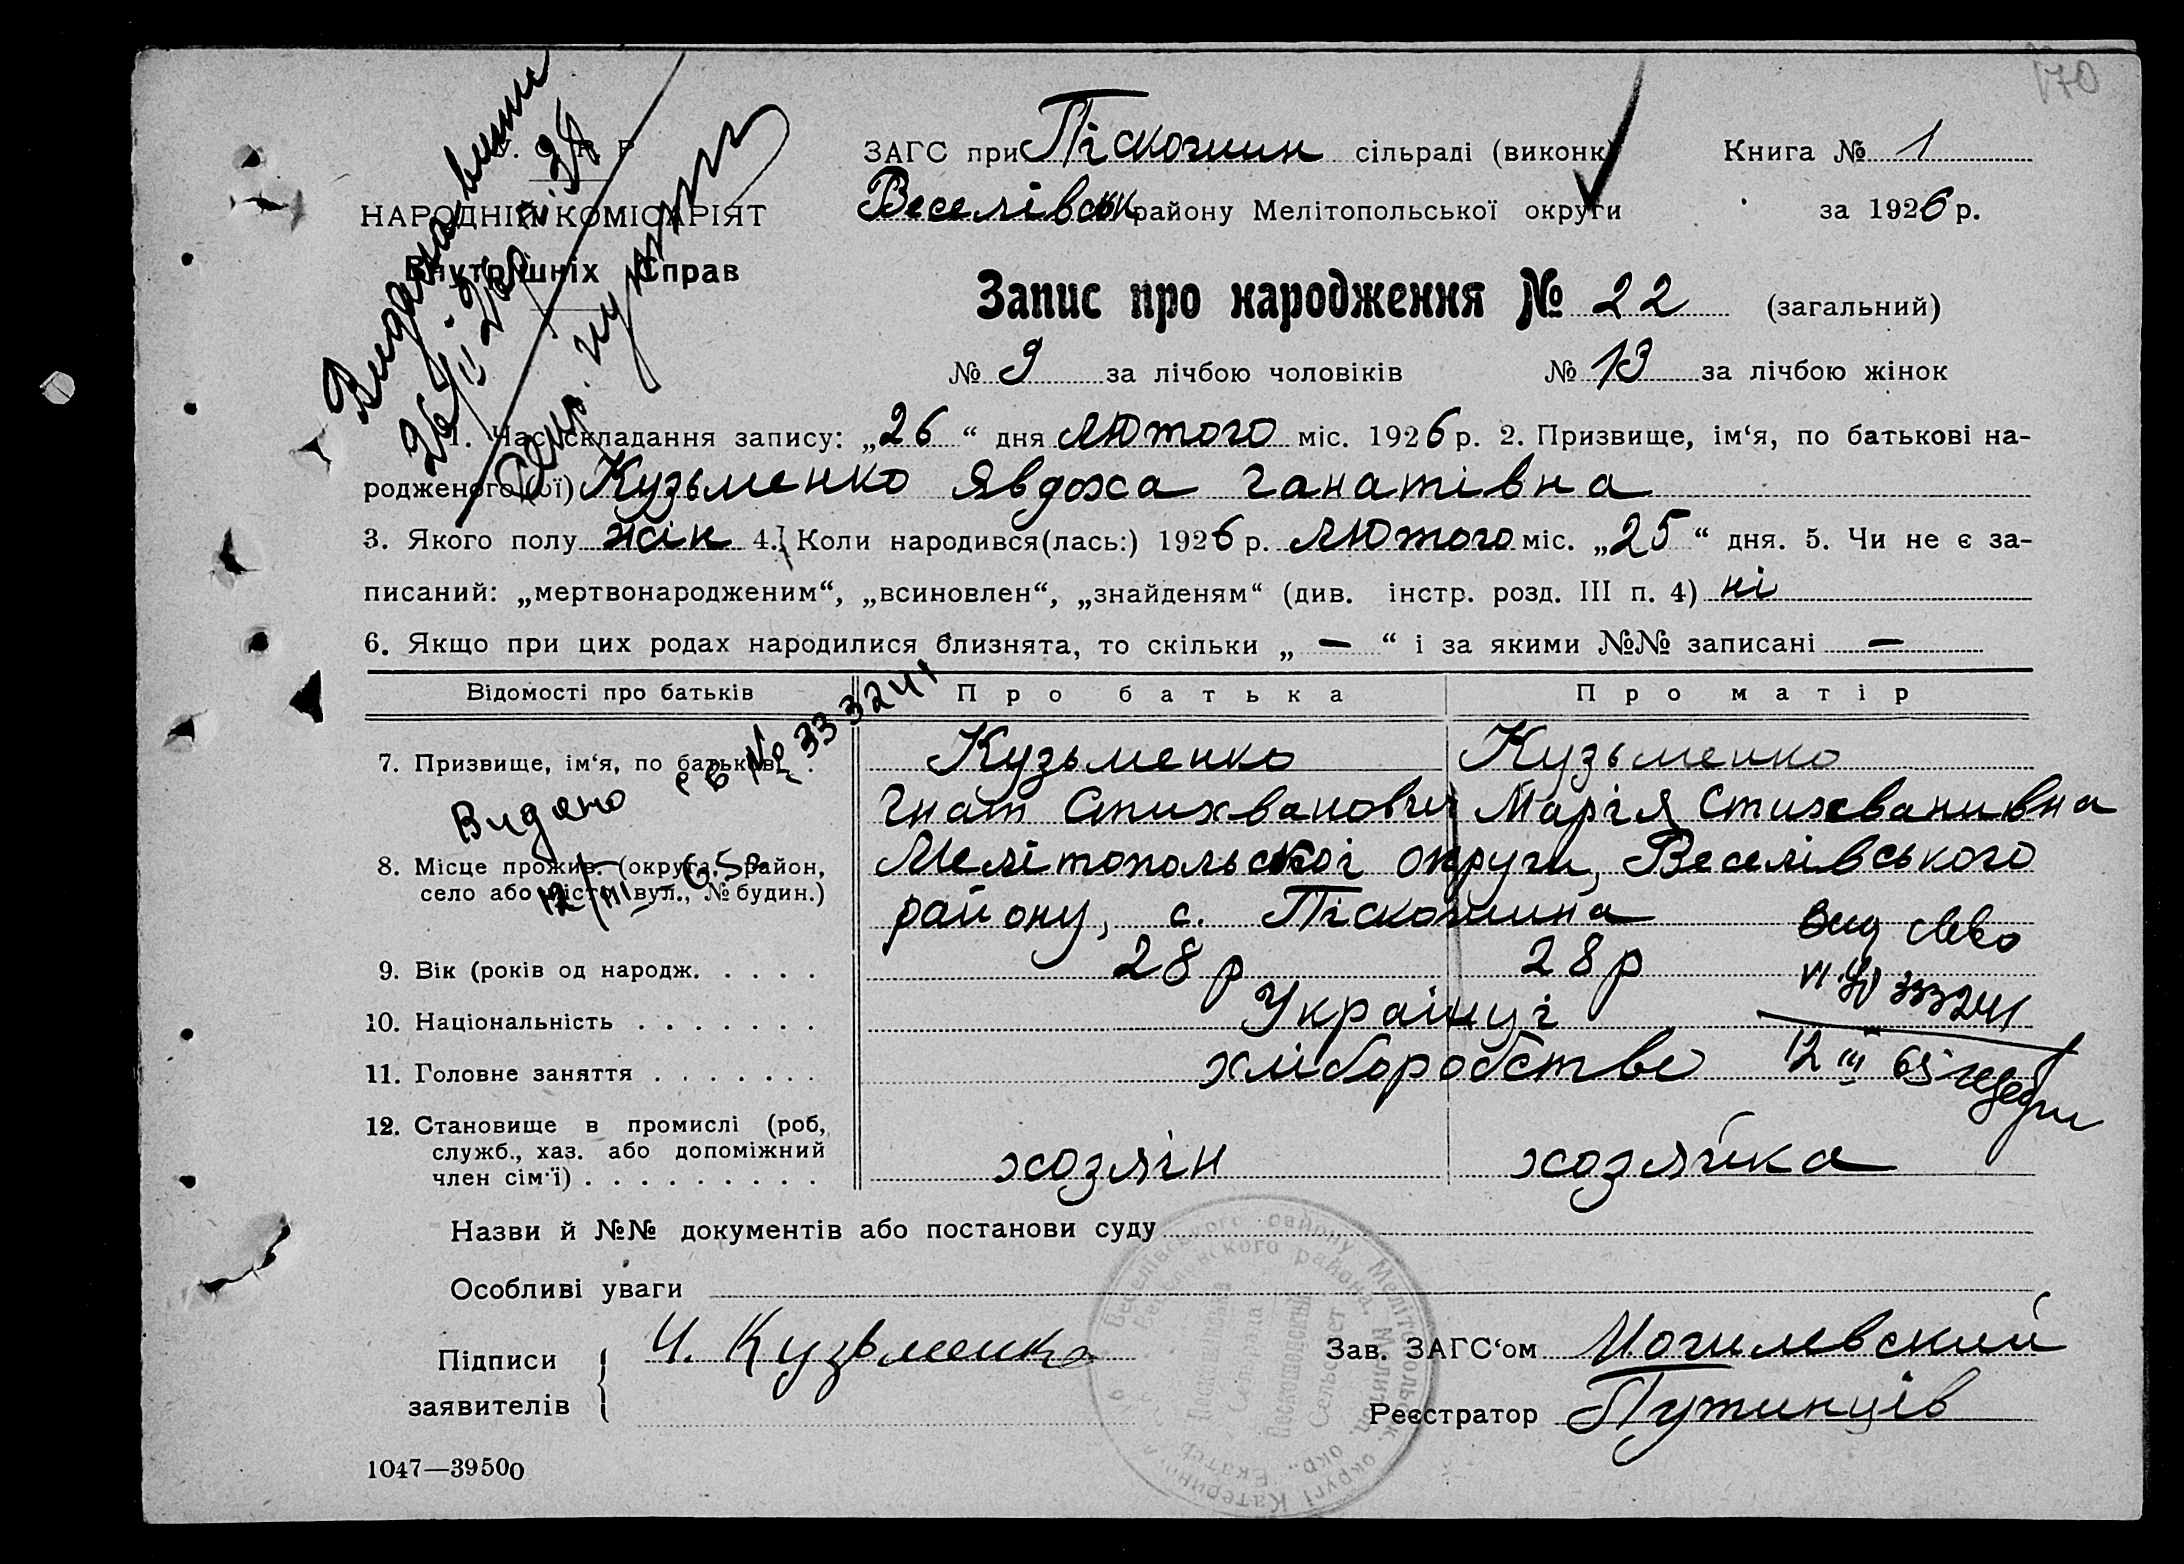 170
ЗАГС при Піскошин сільраді (виконк)
Книга № 1
Веселівськ району Мелітопольської округи
за 1926 р.
У. С. Р. Р.
НАРОДНІЙ КОМІСАРІЯТ
Внутрішніх Справ
Запис про народження № 22 (загальний)
№ 9 за лічбою чоловіків № 13 за лічбою жінок
1. Час складання запису: „26“ дня лютого міс. 1926 р. 2. Призвище, ім‘я, по батькові на-
родженого(ої) Кузьменко Явдоха Ганатівна
3. Якого полу жін 4. Коли народився(лась:) 1926 р. лютого міс. „25“ дня. 5. Чи не є за-
писаний: „мертвонародженим“, „всиновлен“, „знайденям“ (див. інстр. розд. III п. 4) ні
6. Якщо при цих родах народилися близнята, то скільки „ — “ і за якими №№ записані —
Відомості про батьків Про батька Про матір
7. Призвище, ім‘я, по батькові . Кузьменко Кузьменко
Гнат Стихванович Марія Стихванивна
Видано св № 333241
12/III-65
8. Місце прожив. (округа, район,
село або місто, вул., № будин.)
Мелітопольської округи, Веселівського
району, с. Піскошина
9. Вік (років од народж. . . . . 28 р 28 р
10. Національність . . . . . . . Українці
11. Головне заняття . . . . . . . хліборобство
333241
12 III 65
12. Становище в промислі (роб,
служб., хаз. або допоміжний
член сім‘ї) . . . . . . . . .
хозяін хозяйка
Назви й №№ документів або постанови суду
Особливі уваги
Підписи
заявителів
Ч. Кузьменко
Зав. ЗАГС‘ом Могилевский
Реєстратор Путинців
1047—39500